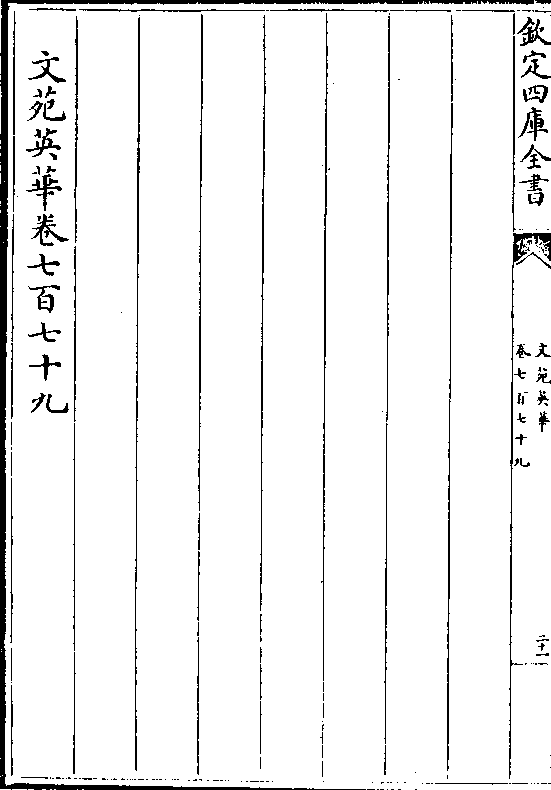 欽定四庫全書
文苑英華
卷七百七十九
二十一
文苑英華卷七百七十九